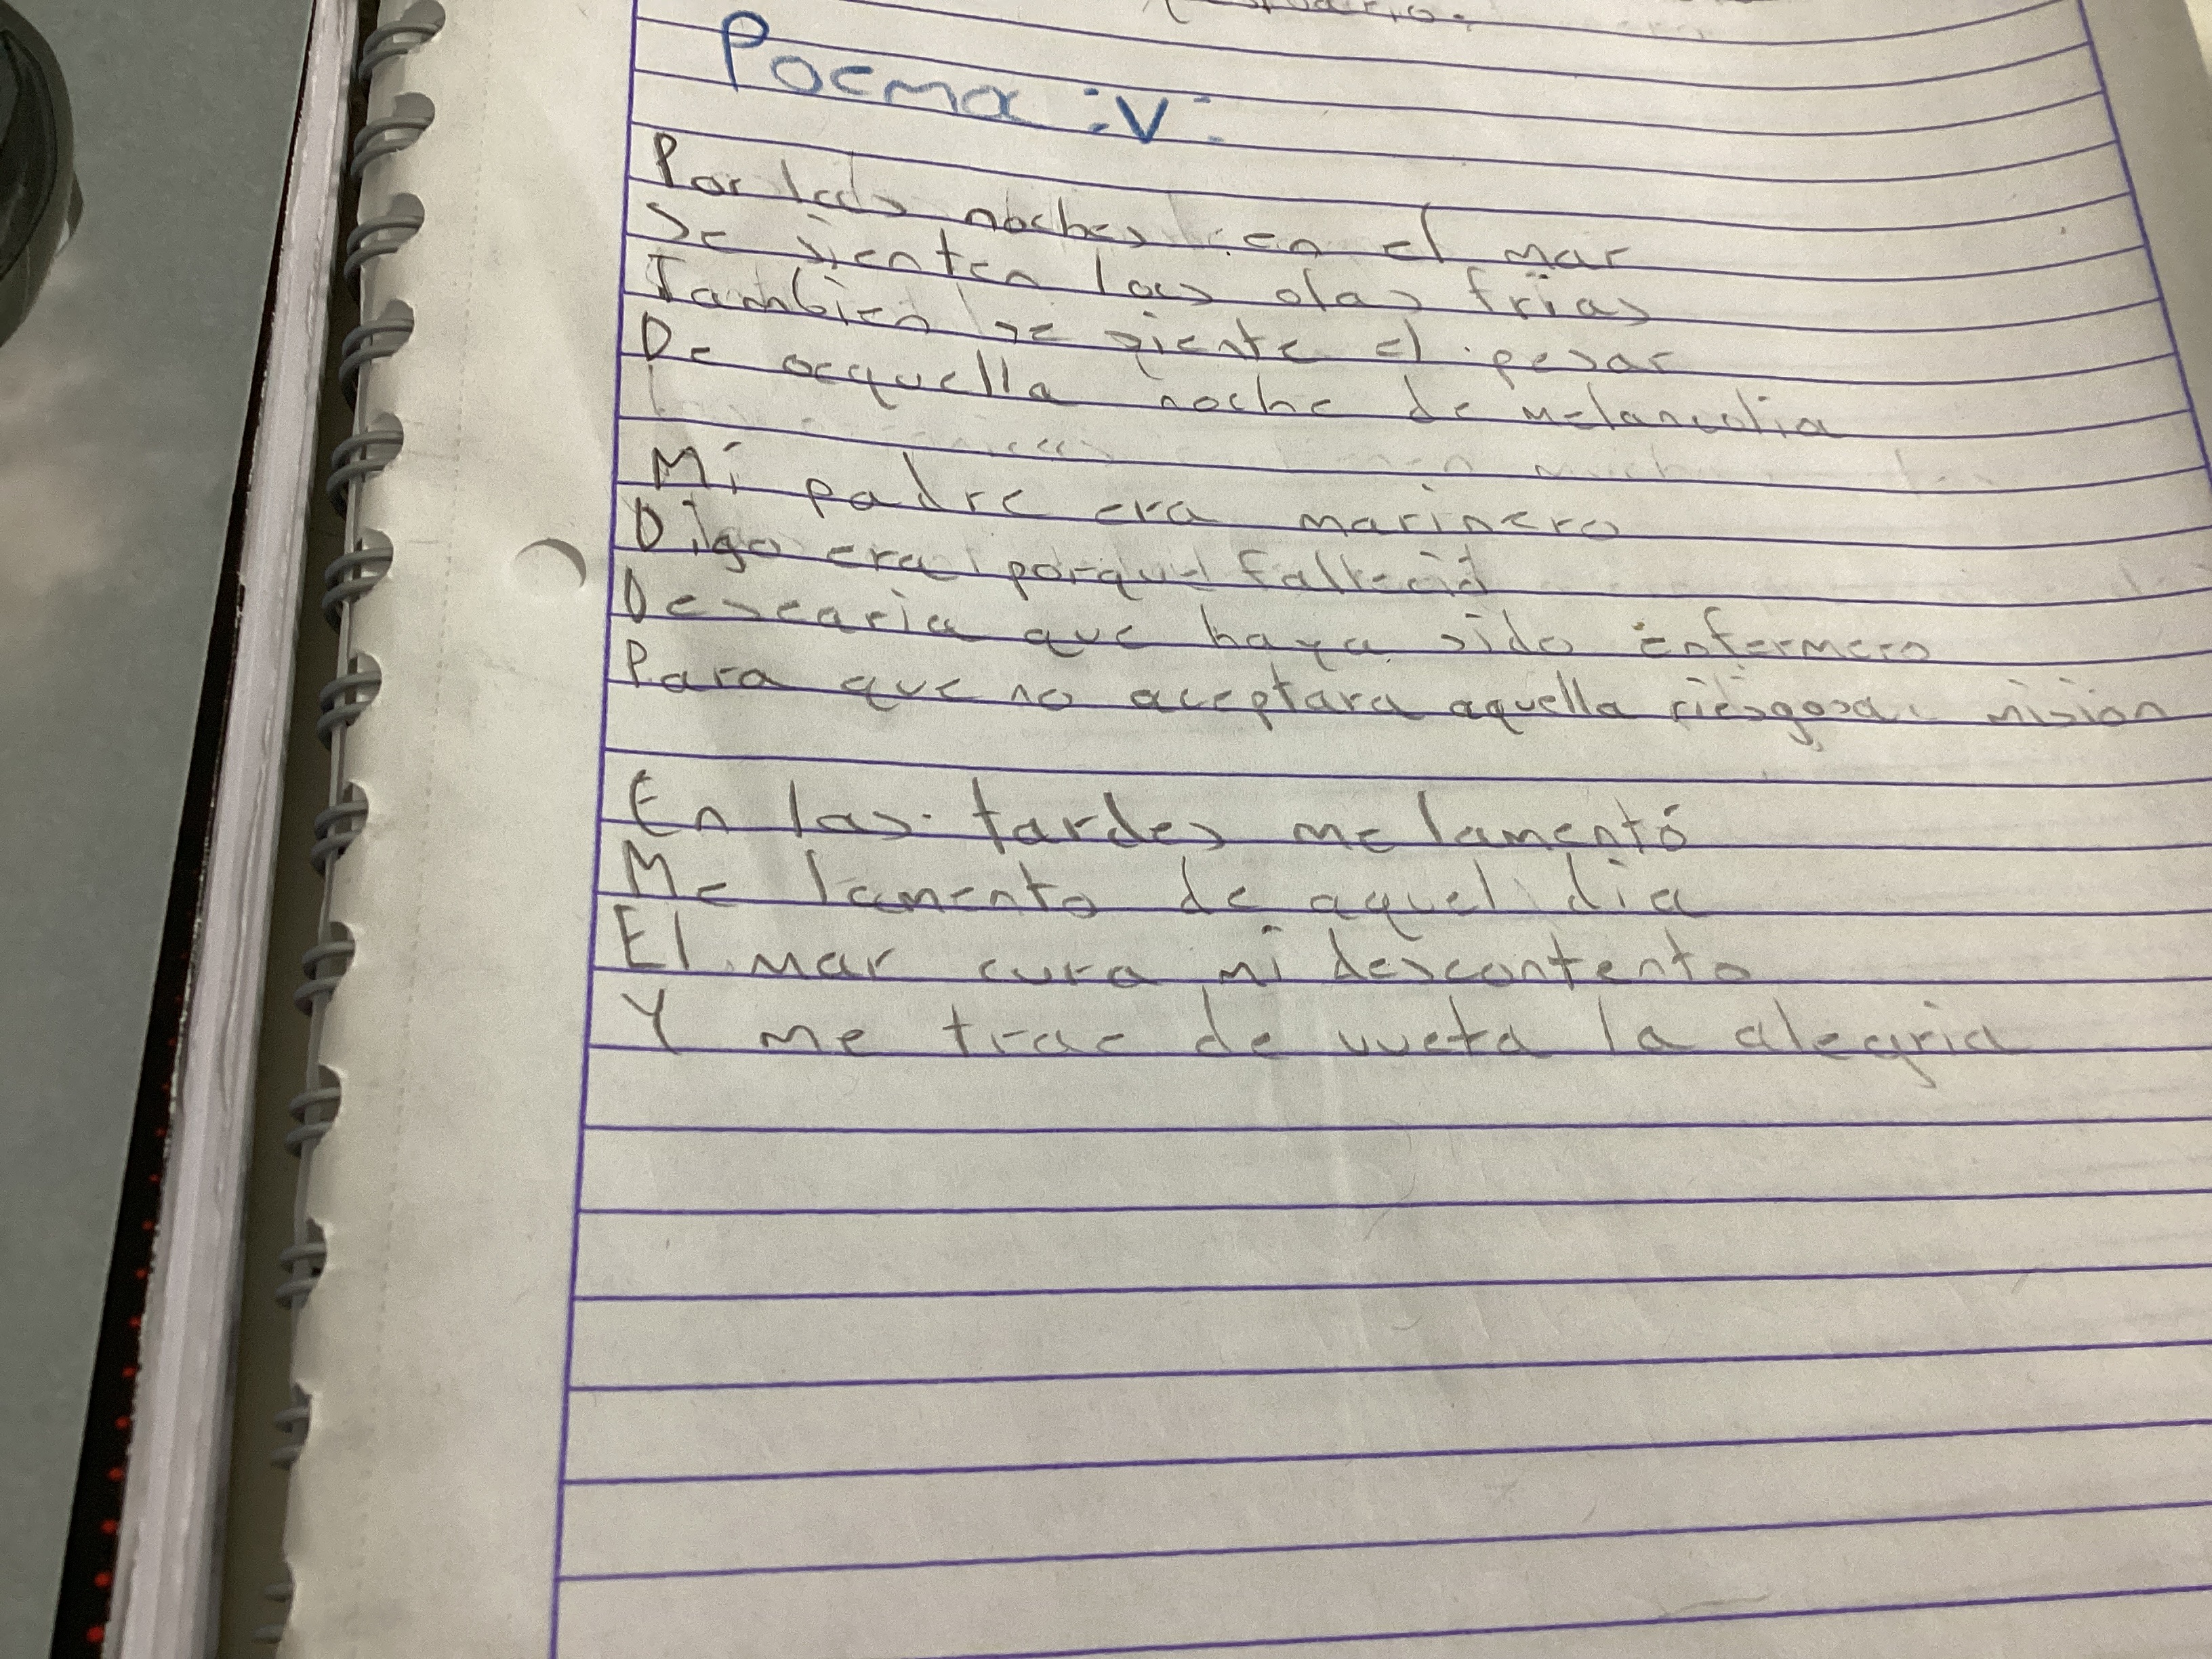 Poema :V:
Por las noches en el mar
Se sienten las olas frias
Tambien se siente el pesar
De aquella noche de melancolia
Mi padre era marinero
Digo era porque falleció
Desearia que haya sido enfermero
Para que no aceptara aquella riesgosa misión
En las tardes me lamentó
Me lamento de aquel dia
El mar cura mi descontento
Y me trae de vueta la alegria